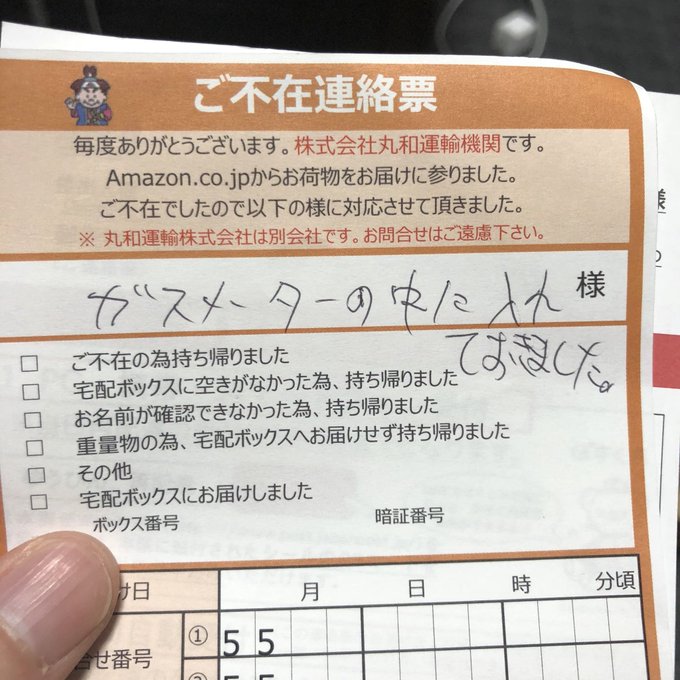 ご不在連絡票
毎度ありがとうございます。株式会社丸和運輸機関です。
Amazon.co.jpからお荷物をお届けに参りました。
ご不在でしたので以下の様に対応させて頂きました。
※ 丸和運輸株式会社は別会社です。お問合せはご遠慮下さい。
ガスメーターの中に入れ 様
ておきました。
□ ご不在の為持ち帰りました
□ 宅配ボックスに空きがなかった為、持ち帰りました
□ お名前が確認できなかった為、持ち帰りました
□ 重量物の為、宅配ボックスへお届けせず持ち帰りました
□ その他
□ 宅配ボックスにお届けしました
ボックス番号 暗証番号
け日 月 日 時 分頃
合せ番号 ① 5 5
様